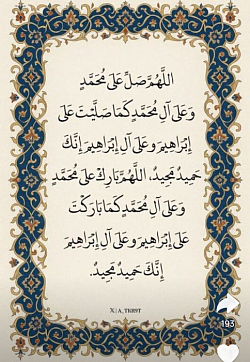 اللَّهُمَّ صَلِّ عَلَىٰ مُحَمَّدٍ
وَعَلَىٰ آلِ مُحَمَّدٍ كَمَا صَلَّيْتَ عَلَىٰ
إِبْرَاهِيمَ وَعَلَىٰ آلِ إِبْرَاهِيمَ إِنَّكَ
حَمِيدٌ مَجِيدٌ، اللَّهُمَّ بَارِكْ عَلَىٰ مُحَمَّدٍ
وَعَلَىٰ آلِ مُحَمَّدٍ كَمَا بَارَكْتَ
عَلَىٰ إِبْرَاهِيمَ وَعَلَىٰ آلِ إِبْرَاهِيمَ
إِنَّكَ حَمِيدٌ مَجِيدٌ.
X | A_TKR9T
193